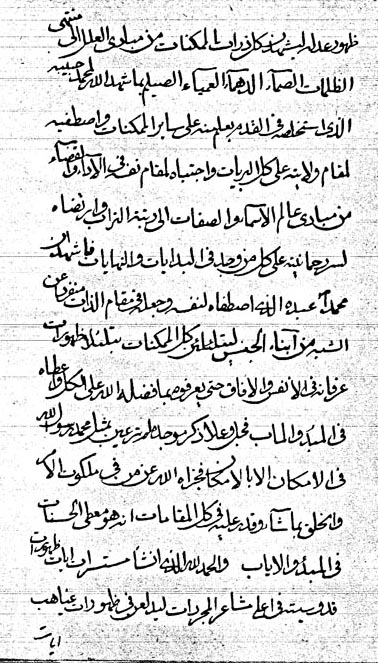 ظهور عدله ليشهدن كل ذرات الممكنات من مبادى العلل الى منتهى
الظلمات الصماء الدهماء العمياء الصيلم بما شهد الله لمحمد حبيبه
الذى استخلصه فى القدم بعلمه على سائر الممكنات واصطفيه
لمقام ولايته على كل البريات واجتباه لمقام نفسه فى الاداء والقضاء
من مبادى عالم الاسماء والصفات الى رتبة التراب وارتضاه
لسر رحمانيته على كل من وجد فى البدايات والنهايات فاشهد ان
محمدا عبده الذى اصطفاه لنفسه وجعله فى مقام الذات منفردا عن
الشبه من ابناء الجنس ليتلطلئن كل الممكنات بتلئلأ ظهورات
عرفانه فى الانفس والافاق حتى يعرفوه بما فضله الله على الكل واعطاه
فى المبدء والماب فجل وعلا ذكره وجد لم تر عين بمثل محمد رسول الله
فى الامكان الا بالامكان فجزاه الله عن من فى ملكوت الامر
والخلق بما شاء وقدر عليه فى كل المقامات انه هو معطى الحسنات
فى المبدء والاياب والحمد لله الذى انشأ مسترات ايات ظهورات
قدوسيته فى اعلى مشاعر المجردات ليدلعن فى ظهورات غياهب
ايات